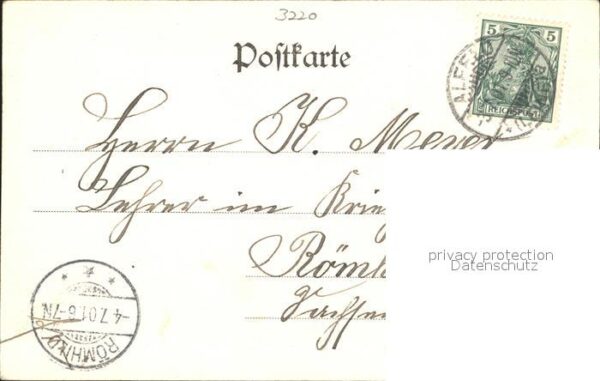 3220
Postkarte
5 5
REICHSPOST
ALFELD
Herrn K. Meyer
Lehrer im Krie
privacy protection
Datenschutz
Römh
Sachsen
-4.7.01.6-7N.
RÖMHILD